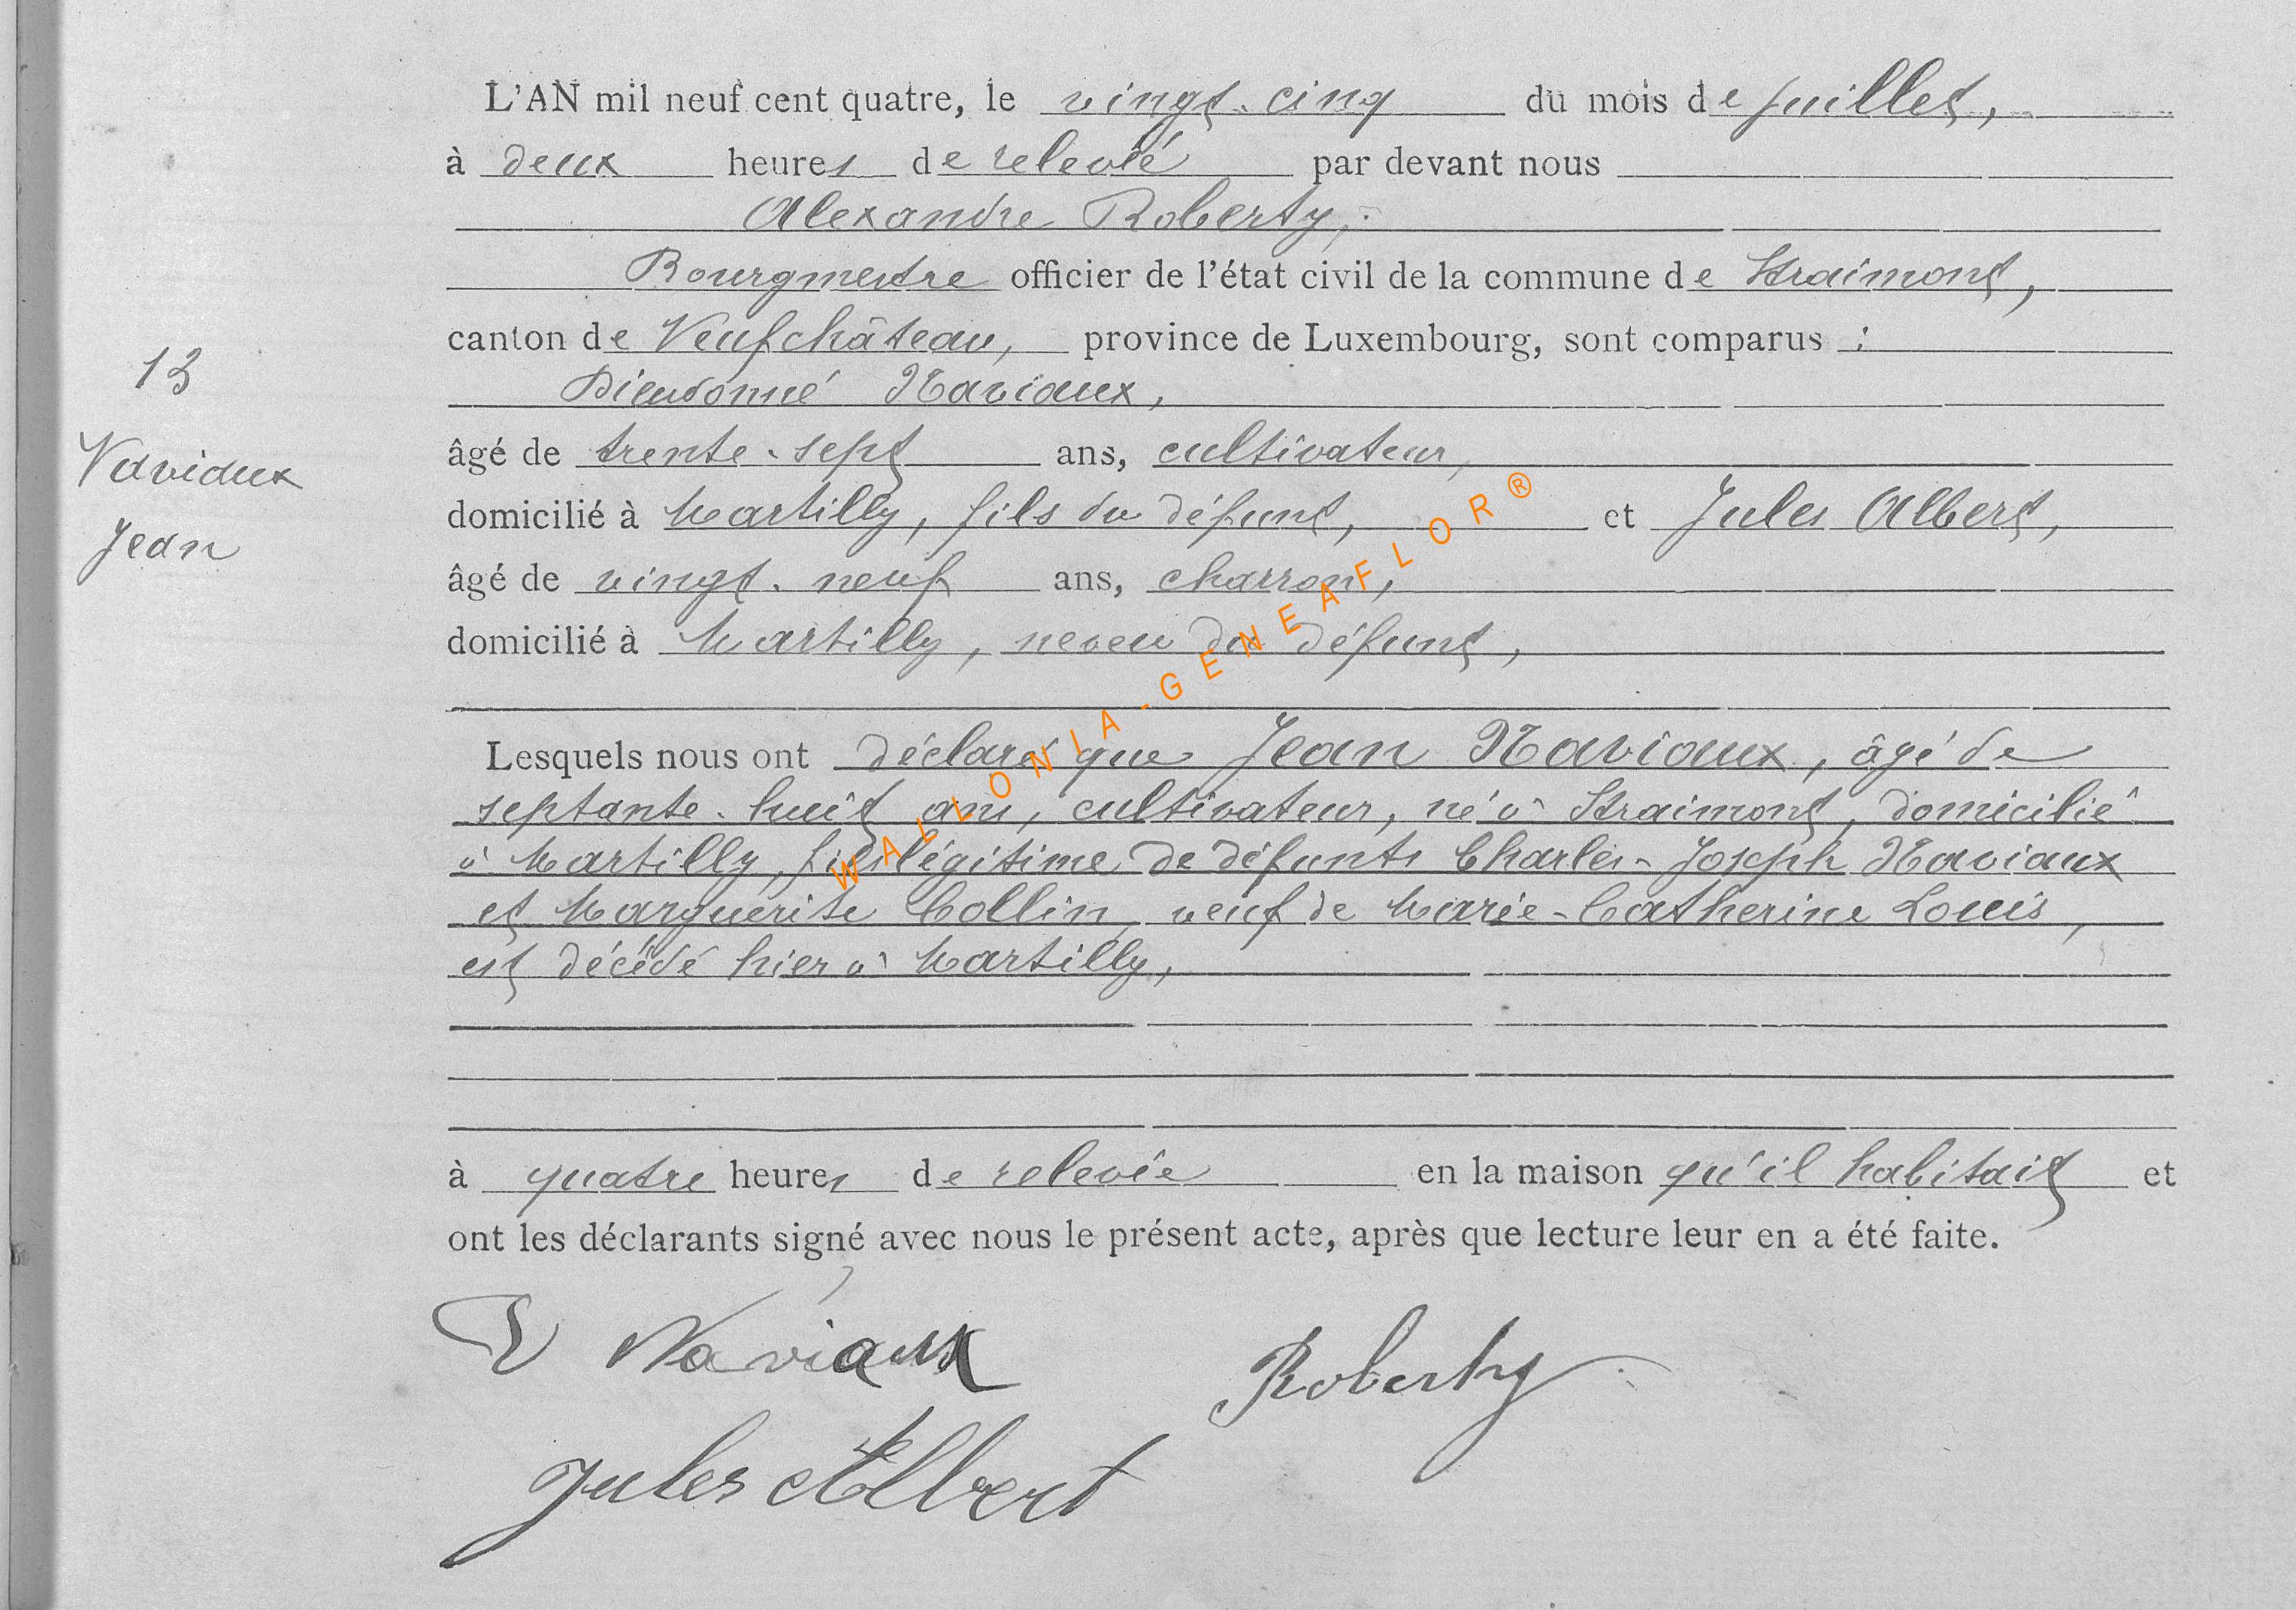 L'AN mil neuf cent quatre, le vingt-cinq du mois de juillet,
à deux heures de relevée par devant nous
Alexandre Roberty,
Bourgmestre officier de l'état civil de la commune de Straimont,
canton de Neufchâteau, province de Luxembourg, sont comparus :
Dieudonné Naviaux,
âgé de trente-sept ans, cultivateur,
domicilié à Martilly, fils du défunt, et Jules Albert,
âgé de vingt-neuf ans, charron,
domicilié à Martilly, neveu du défunt,
13
Naviaux
Jean
Lesquels nous ont déclaré que Jean Naviaux, âgé de
septante-huit ans, cultivateur, né à Straimont, domicilié
à Martilly, fils légitime de défunts Charles-Joseph Naviaux
et Marguerite Collin, veuf de Marie-Catherine Louis,
est décédé hier à Martilly,
à quatre heures de relevée en la maison qu'il habitait et
ont les déclarants signé avec nous le présent acte, après que lecture leur en a été faite.
D Naviaux Roberty
Jules Albert
WALLONIA-GENEAFLOR®